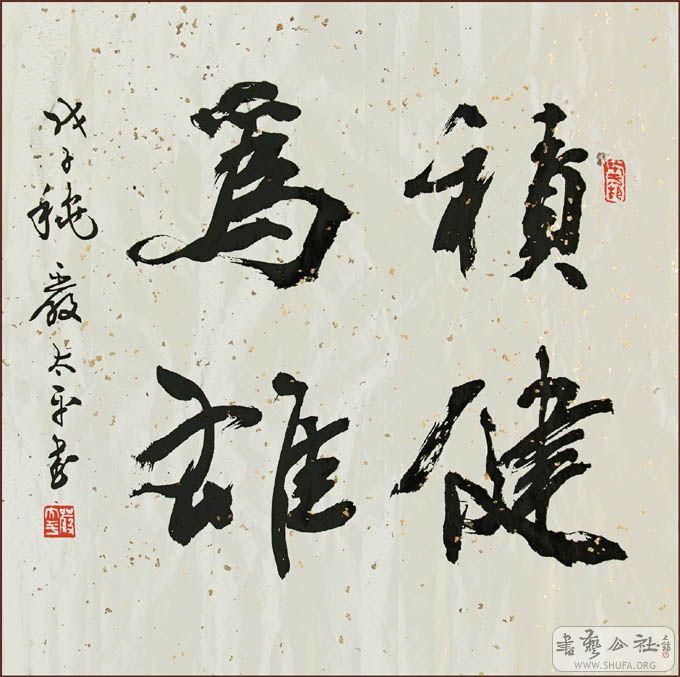 積健
爲雄
戊子穐嚴太平書
書藝公社
WWW.SHUFA.ORG